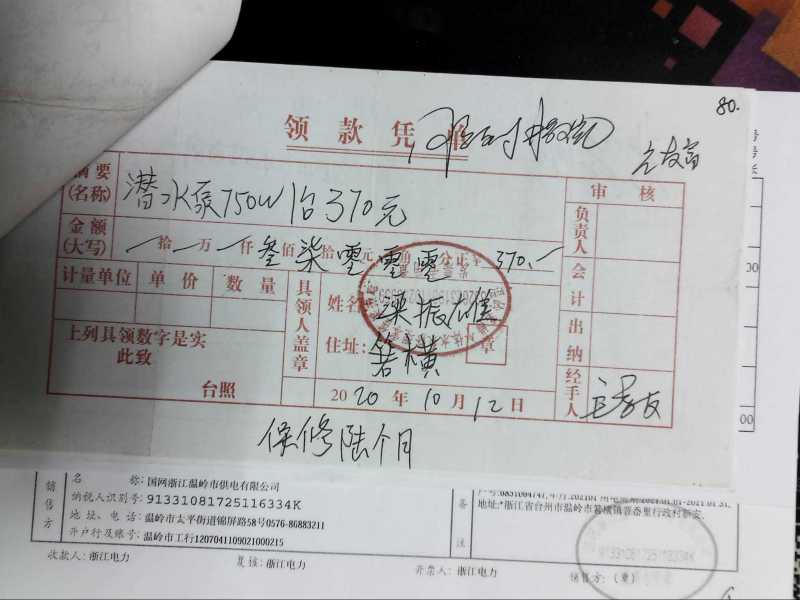 80.
领款凭单
摘要(名称) 潜水泵750W 1台370元 审核
金额(大写) 拾 万 仟叁佰柒拾零元零角零分正¥ 370.— 负责人
计量单位 单价 数量 具领人盖章 姓名 梁振雄 会计
上列具领数字是实 住址: 箬横 章 出纳
此致
台照 2020年10月12日 经手人
保修陆个月
销售方 名 称: 国网浙江温岭市供电有限公司
纳税人识别号: 91331081725116334K 备注
地址、电话: 温岭市太平街道锦屏路58号0576-86883211
开户行及账号: 温岭市工行1207041109021000215
收款人: 浙江电力 复核: 浙江电力 开票人: 浙江电力 销售方: (章)
91331081725116334K